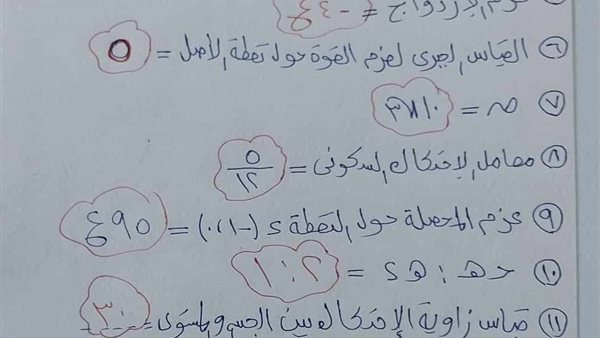 عزم الازدواج = -٤٤٠ع
⑥ القياس الجبرى لعزم القوة حول نقطة الأصل = ٥
⑦ ص =
⑧ معامل الاحتكاك السكونى = ٥/١٢
⑨ عزم المحصلة حول النقطة د (-١،٠) = ٩٥ع
⑩ حـ هـ : هـ د = ٢ : ١
⑪ قياس زاوية الإحتكاك بين الجسم والمستوى = ٣٠